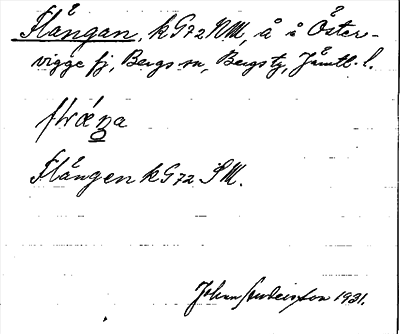 Flången, kG72NW, å i Öster-
vigge fj, Bergs sn, Bergs tg, Jämtl. l.
Flången kG72 SW.
Johan Anderisson 1931.